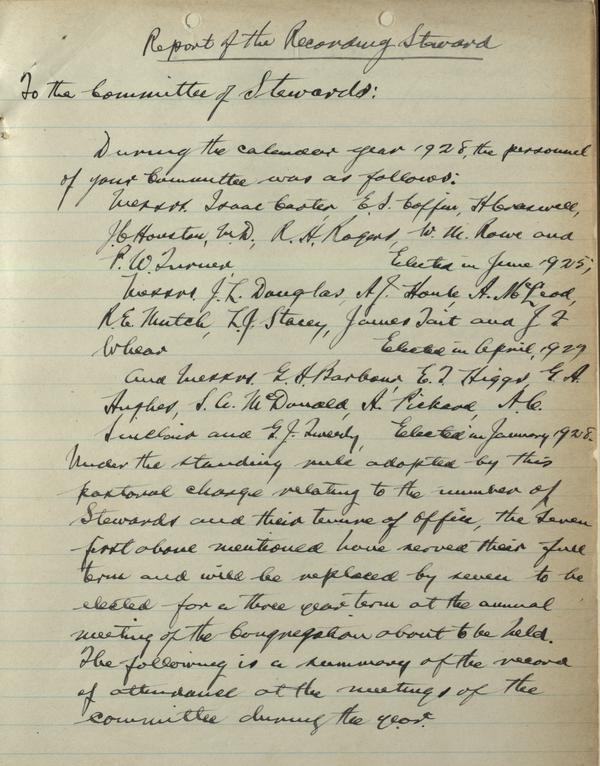 Report of the Recording Steward
To the Committee of Stewards:
During the calendar year 1928, the personnel
of your Committee was as follows:
Messrs. Isaac Carter, E. S. Coffin, H Craswell,
J. C. Houston, M.D., R. H. Rogers, W. M. Rowe and
P. W. Turner, Elected in June 1925;
Messrs J. L. Douglas, A. J. Houle, A. McLeod,
R. E. Mutch, L. J. Stacey, James Tait and J
Whear Elected in April, 1927
and Messrs. G. H. Barbour, E. T. Higgs, G. A.
Hughes, S. A. McDonald, A. Pickard, A. C.
Sinclair and G. J. Tweedy, Elected in January 1928.
Under the standing rule adopted by this
pastoral charge relating to the number of
Stewards and their tenure of office, the seven
first above mentioned have served their full
term and will be replaced by seven to be
elected for a three year term at the annual
meeting of the Congregation about to be held.
The following is a summary of the record
of attendance at the meetings of the
committee during the year.